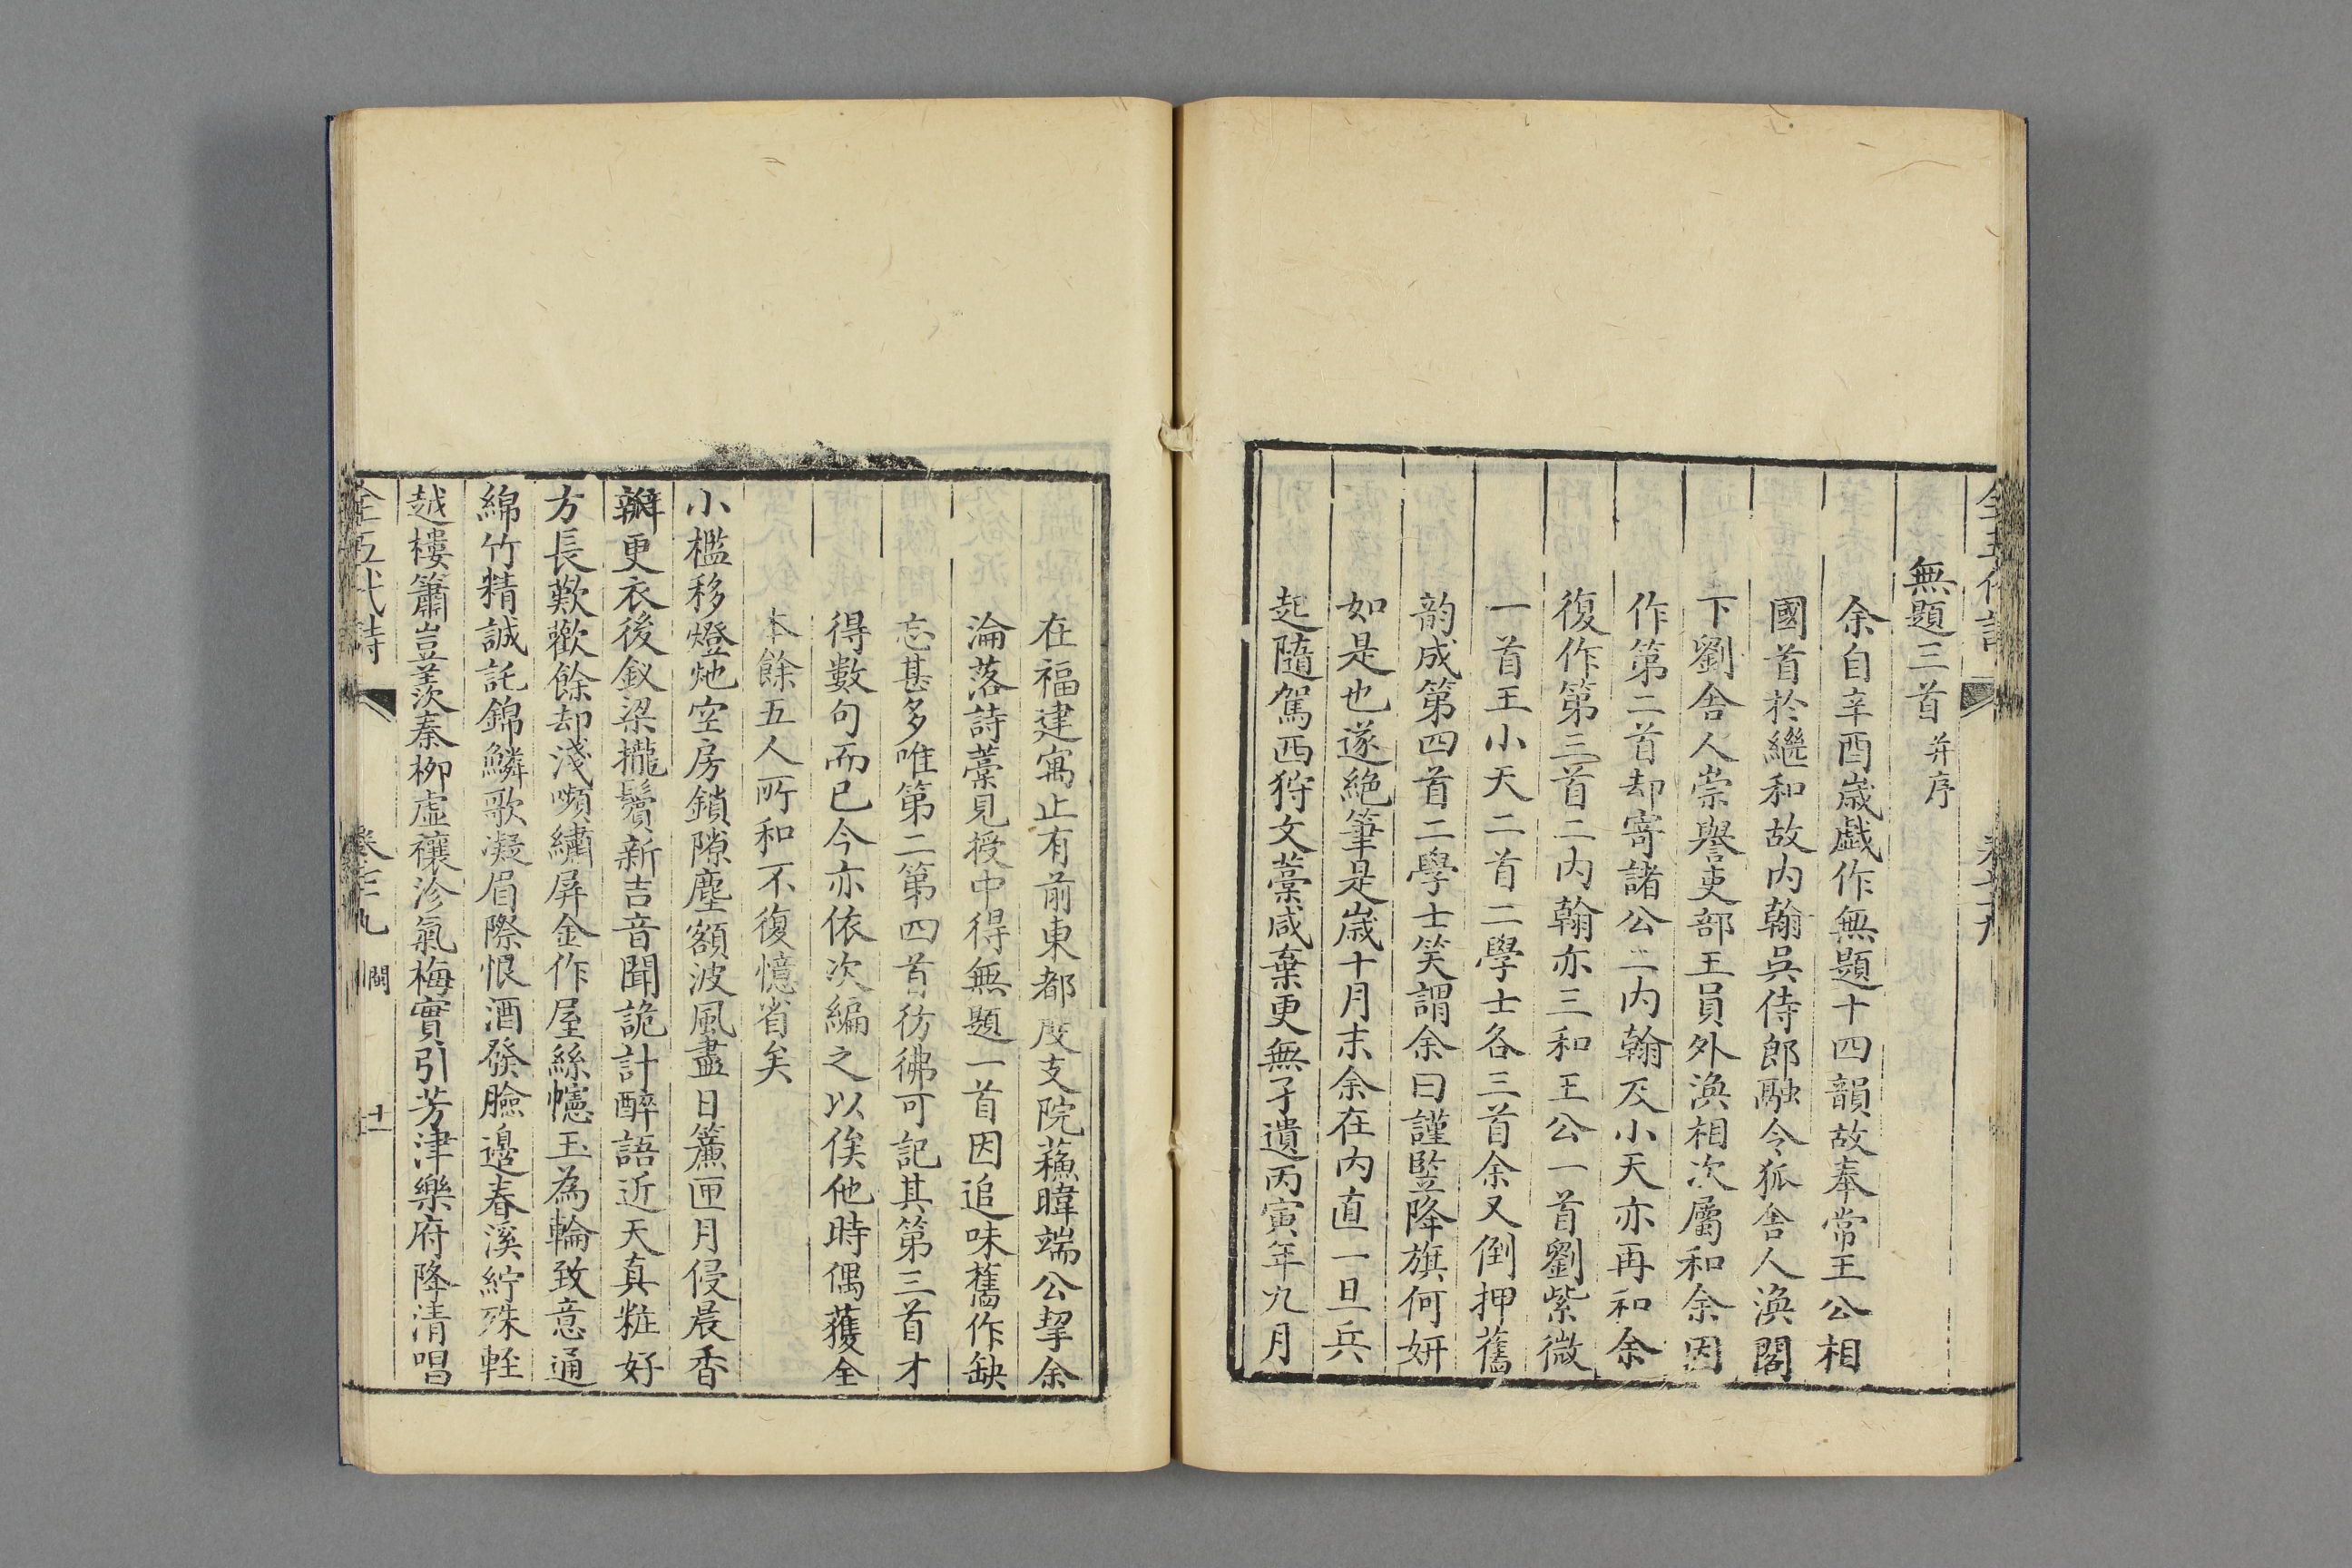 無題三首 并序
余自辛酉歲戲作無題十四韻故奉常王公相
國首於繼和故内翰吳侍郎融令狐舍人渙閣
下劉舍人崇譽吏部王員外渙相次屬和余因
作第二首却寄諸公二内翰及小天亦再和余
復作第三首二内翰亦三和王公一首劉紫微
一首王小天二首二學士各三首余又倒押舊
韵成第四首二學士笑謂余曰謹竪降旗何妍
如是也遂絶筆是歲十月末余在内直一旦兵
起隨駕西狩文藁咸棄更無孑遺丙寅年九月
在福建寓止有前東都度支院蘓暐端公挈余
淪落詩藁見授中得無題一首因追味舊作缺
忘甚多唯第二第四首彷彿可記其第三首才
得數句而已今亦依次編之以俟他時偶獲全
本餘五人所和不復憶省矣
小檻移燈灺空房鎖隙塵額波風盡日簾匣月侵晨香
辦更衣後釵梁攏鬢新吉音聞詭計醉語近天真粧好
方長歎歡餘却淺嚬繡屏金作屋絲幰玉為輪致意通
綿竹精誠託錦鱗歌凝眉際恨酒發臉邊春溪紵殊輕
越樓簫豈羨秦柳虛禳沴氣梅實引芳津樂府降清唱
全五代詩 卷七十九 閩 十一